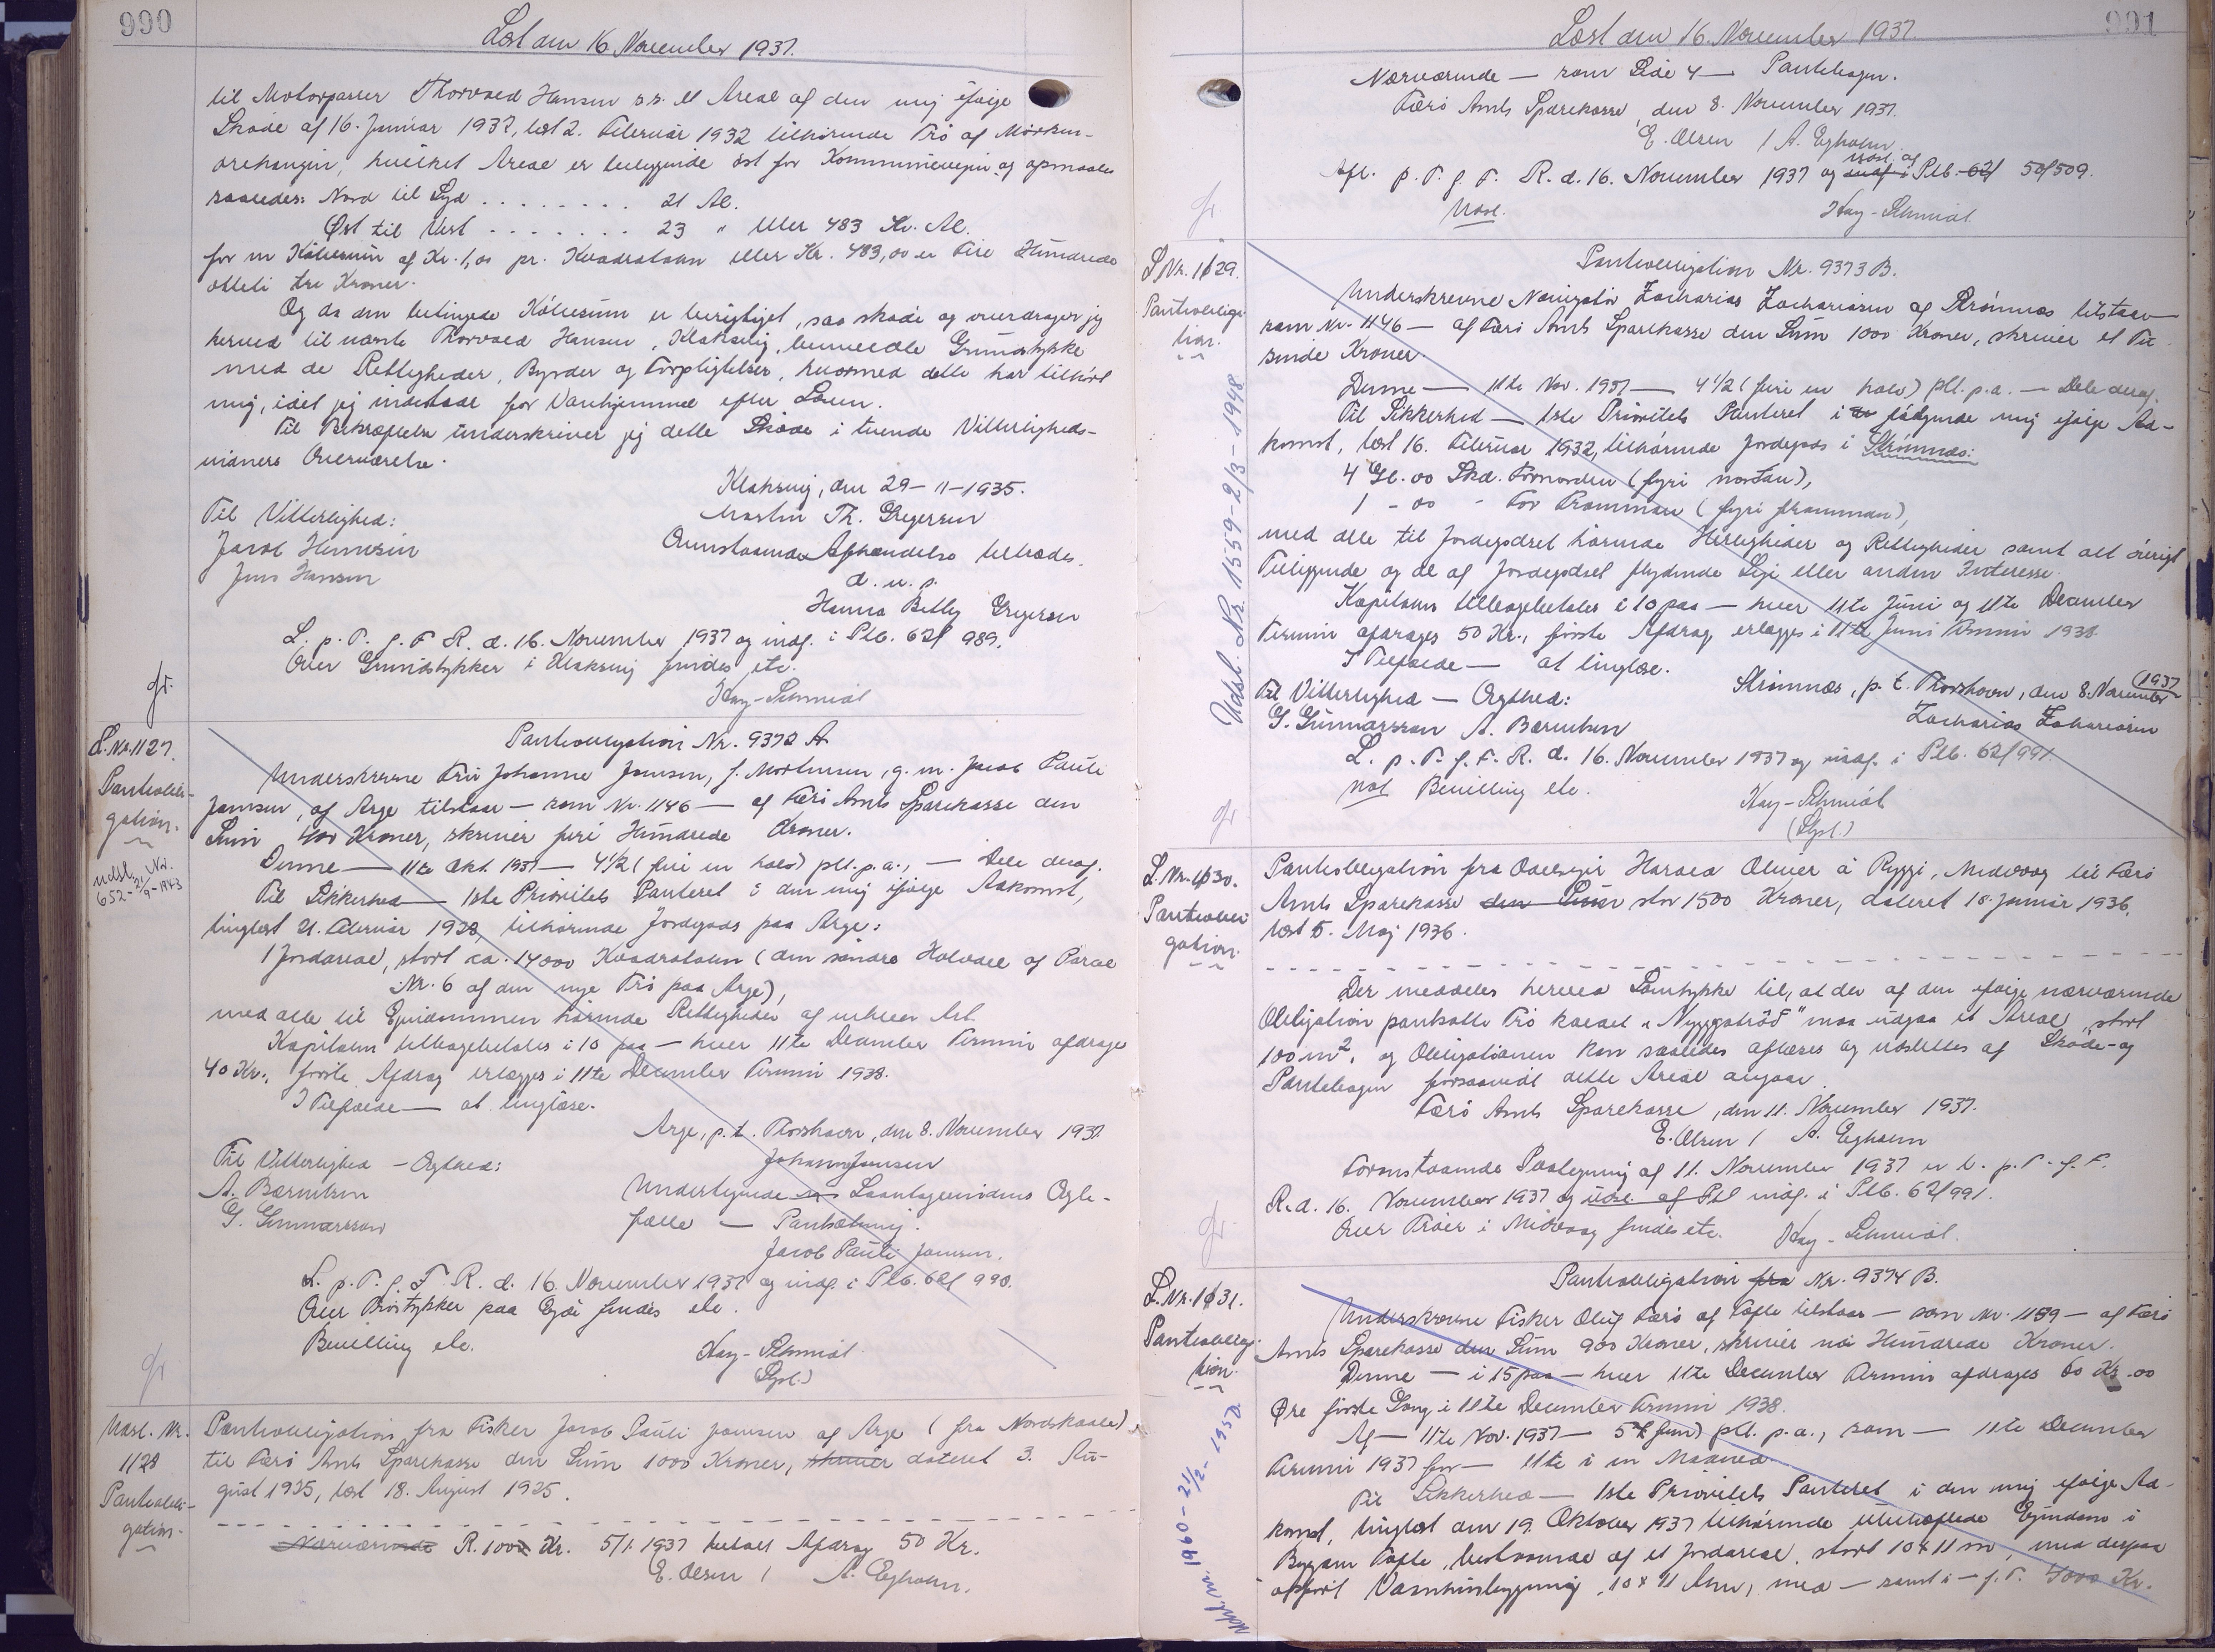 990
Læst den 16. November 1937.
til Motorpasser Thorvald Hansen s.s. et Areal af den mig ifølge
Skøde af 16. Januar 1932, læst 2. Februar 1932 tilhørende Trø af Mørkin-
orehaugin, hvilket Areal er beliggende øst for Kommunevejen og opmaales
saaledes: Nord til Syd . . . . . . . . 21 Al.
Øst til Vest . . . . . . . 23 " eller 483 Kv. Al.
for en Købesum af Kr. 1,00 pr. Kvadratalen eller Kr. 483,00 er Fire Hundrede
otteti tre Kroner.
Og da den betingede Købesum er berigtiget, saa skøde og overdrager jeg
herved til nævnte Thorvald Hansen, Klaksvig, bemeldte Grundstykke
med de Rettigheder, Byrder og Forpligtelser, hvormed dette har tilhørt
mig, idet jeg indestaar for Vanhjemmel efter Loven.
Til Bekræftelse underskriver jeg dette Skøde i tvende Vitterligheds-
vidners Overværelse.
Klaksvig, den 29-11-1935.
Til Vitterlighed:
Martin Th. Gregersen
Jacob Hennesin
Ovenstaaende Afhændelse tiltrædes.
Jens Hansen
d. u. s.
Hanna Betty Gregersen
L. p. T. f. F. R. d. 16. November 1937 og indf. i Ptb. 62/ 989.
Over Grundstykker i Klaksvig findes etc.
gr.
Kay-Schmidt
L. Nr. 1127.
Pantobli-
gation.
Pantobligation Nr. 9372 A
Underskrevne Fru Johanne Joensen, f. Mortensen, g. m. Jacob Pauli
Joensen, af Arge tilstaar — som Nr. 1146 — af Færø Amts Sparekasse den
Sum 400 Kroner, skriver fire Hundrede Kroner.
Denne — 11te Okt. 1937 — 4 1/2 (fire en halv) pCt. p.a., — Dele deraf.
Udsl. Nr.
652 - 21/9-1943
Til Sikkerhed — 1ste Prioritets Panteret i den mig ifølge Adkomst,
tinglæst 21. Februar 1928, tilhørende Jordegods paa Arge:
1 Jordareal, stort ca. 14000 Kvadratalen (den søndre Halvdel af Parcel
Nr. 6 af den nye Trø paa Arge),
med alle til Ejendommen hørende Rettigheder af enhver Art.
Kapitalen tilbagebetales i 10 paa — hver 11te December Termin afdrages
40 Kr., første Afdrag erlægges i 11te December Termin 1938.
I Tilfælde — at tinglæse.
Arge, p. t. Thorshavn, den 8. November 1937
Til Vitterlighed — Ægthed:
Johanne Joensen
A. Bærentsen
Undertegnede Laantagerindens Ægte-
G. Gunnarsson
fælle — Pantsætning.
Jacob Pauli Joensen.
L. p. T. f. F. R. d. 16. November 1937 og indf. i Ptb. 62/ 990.
Over Trøstykker paa Ejde findes etc.
Bevilling etc.
gr.
Kay-Schmidt
(Gpl.)
Udsl. Nr.
1128
Pantobli-
gation.
Pantobligation fra Fisker Jacob Pauli Joensen af Arge (fra Nordskaale)
til Færø Amts Sparekasse den Sum 1000 Kroner, skriver dateret 3. Au-
gust 1925, læst 18. August 1925.
Nærværende R. 1000 Kr. 5/1. 1937 betalt Afdrag 50 Kr.
E. Olsen / A. Egholm.
991
Læst den 16. November 1937.
Nærværende — som Side 4 — Pantebogen.
Færø Amts Sparekasse, den 8. November 1937.
E. Olsen / A. Egholm
Afl. p. T. f. F. R. d. 16. November 1937 og indf. i udsl. af Ptb. 62/ 50/509.
gr.
Udsl.
Kay-Schmidt
L. Nr. 1129.
Pantobliga-
tion.
Pantobligation Nr. 9373 B.
Underskrevne Navigatør Zacharias Zachariasen af Strømnæs tilstaar —
som Nr. 1146 — af Færø Amts Sparekasse den Sum 1000 Kroner, skriver et Tu-
sinde Kroner.
Denne — 11te Nov. 1937 — 4 1/2 (fire en halv) pCt. p.a. — Dele deraf.
Til Sikkerhed — 1ste Prioritets Panteret i følgende mig ifølge Ad-
komst, læst 16. Februar 1932, tilhørende Jordegods i Strømnæs:
4 Gl. 00 Skd. Fornorden (fyri nortan),
1 - 00 - For Framman (fyri framman),
med alle til Jordegodset hørende Herligheder og Rettigheder samt alt øvrigt
Tilliggende og de af Jordegodset flydende Leje eller anden Interesse.
Udsl. Nr. 1559 - 2/3 - 1948
Kapitalen tilbagebetales i 10 paa — hver 11te Juni og 11te December
Termin afdrages 50 Kr., første Afdrag erlægges i 11te Juni Termin 1938.
I Tilfælde — at tinglæse.
Strømnæs, p. t. Thorshavn, den 8. November 1937
Til Vitterlighed — Ægthed:
G. Gunnarsson A. Bærentsen
Zacharias Zachariasen
L. p. T. f. F. R. d. 16. November 1937 og indf. i Ptb. 62/991.
not Bevilling etc.
gr
Kay-Schmidt
(Gpl.)
L. Nr. 1130.
Pantobli-
gation.
Pantobligation fra Harald Oliver á Ryggi, Midvaag til Færø
Amts Sparekasse den Sum stor 1500 Kroner, dateret 18. Januar 1936,
læst 5. Maj 1936.
Der meddeles herved Samtykke til, at der af den ifølge nærværende
Obligation pantsatte Trø kaldet "Nyggatrøð" maa udgaa et Areal, stort
100 m², og Obligationen kan saaledes aflæses og udslettes af Skøde- og
Pantebogen forsaavidt dette Areal angaar.
Færø Amts Sparekasse, den 11. November 1937.
E. Olsen / A. Egholm
Foranstaaende Paategning af 11. November 1937 er l. p. T. f. F.
R. d. 16. November 1937 og udsl. af Ptb indf. i Ptb. 62/991.
gr.
Over Trøer i Midvaag findes etc. Kay-Schmidt.
L. Nr. 1131.
Pantobliga-
tion.
Pantobligation fra Nr. 9374 B.
Underskrevne Fisker Oluf Færø af Tofte tilstaar — som Nr. 1139 — af Færø
Amts Sparekasse den Sum 900 Kroner, skriver ni Hundrede Kroner.
Denne — i 15 paa — hver 11te December Termin afdrages 60 Kr. 00
Øre første Gang i 11te December Termin 1938.
Af — 11te Nov. 1937 — 5% (fem) pCt. p.a., som — 11te December
Termin 1937 for — 11te i en Maaned
Udsl. Nr. 1960 - 21/2 - 1950
Til Sikkerhed — 1ste Prioritets Panteret i den mig ifølge Ad-
komst, tinglæst den 19. Oktober 1937 tilhørende Ejendom i
Bygden Tofte, bestaaende af et Jordareal, stort 10 x 11 m, med derpaa
opført Vaaningsbygning, 10 x 11 Alen, med — samt i — f. T. 4000 Kr.